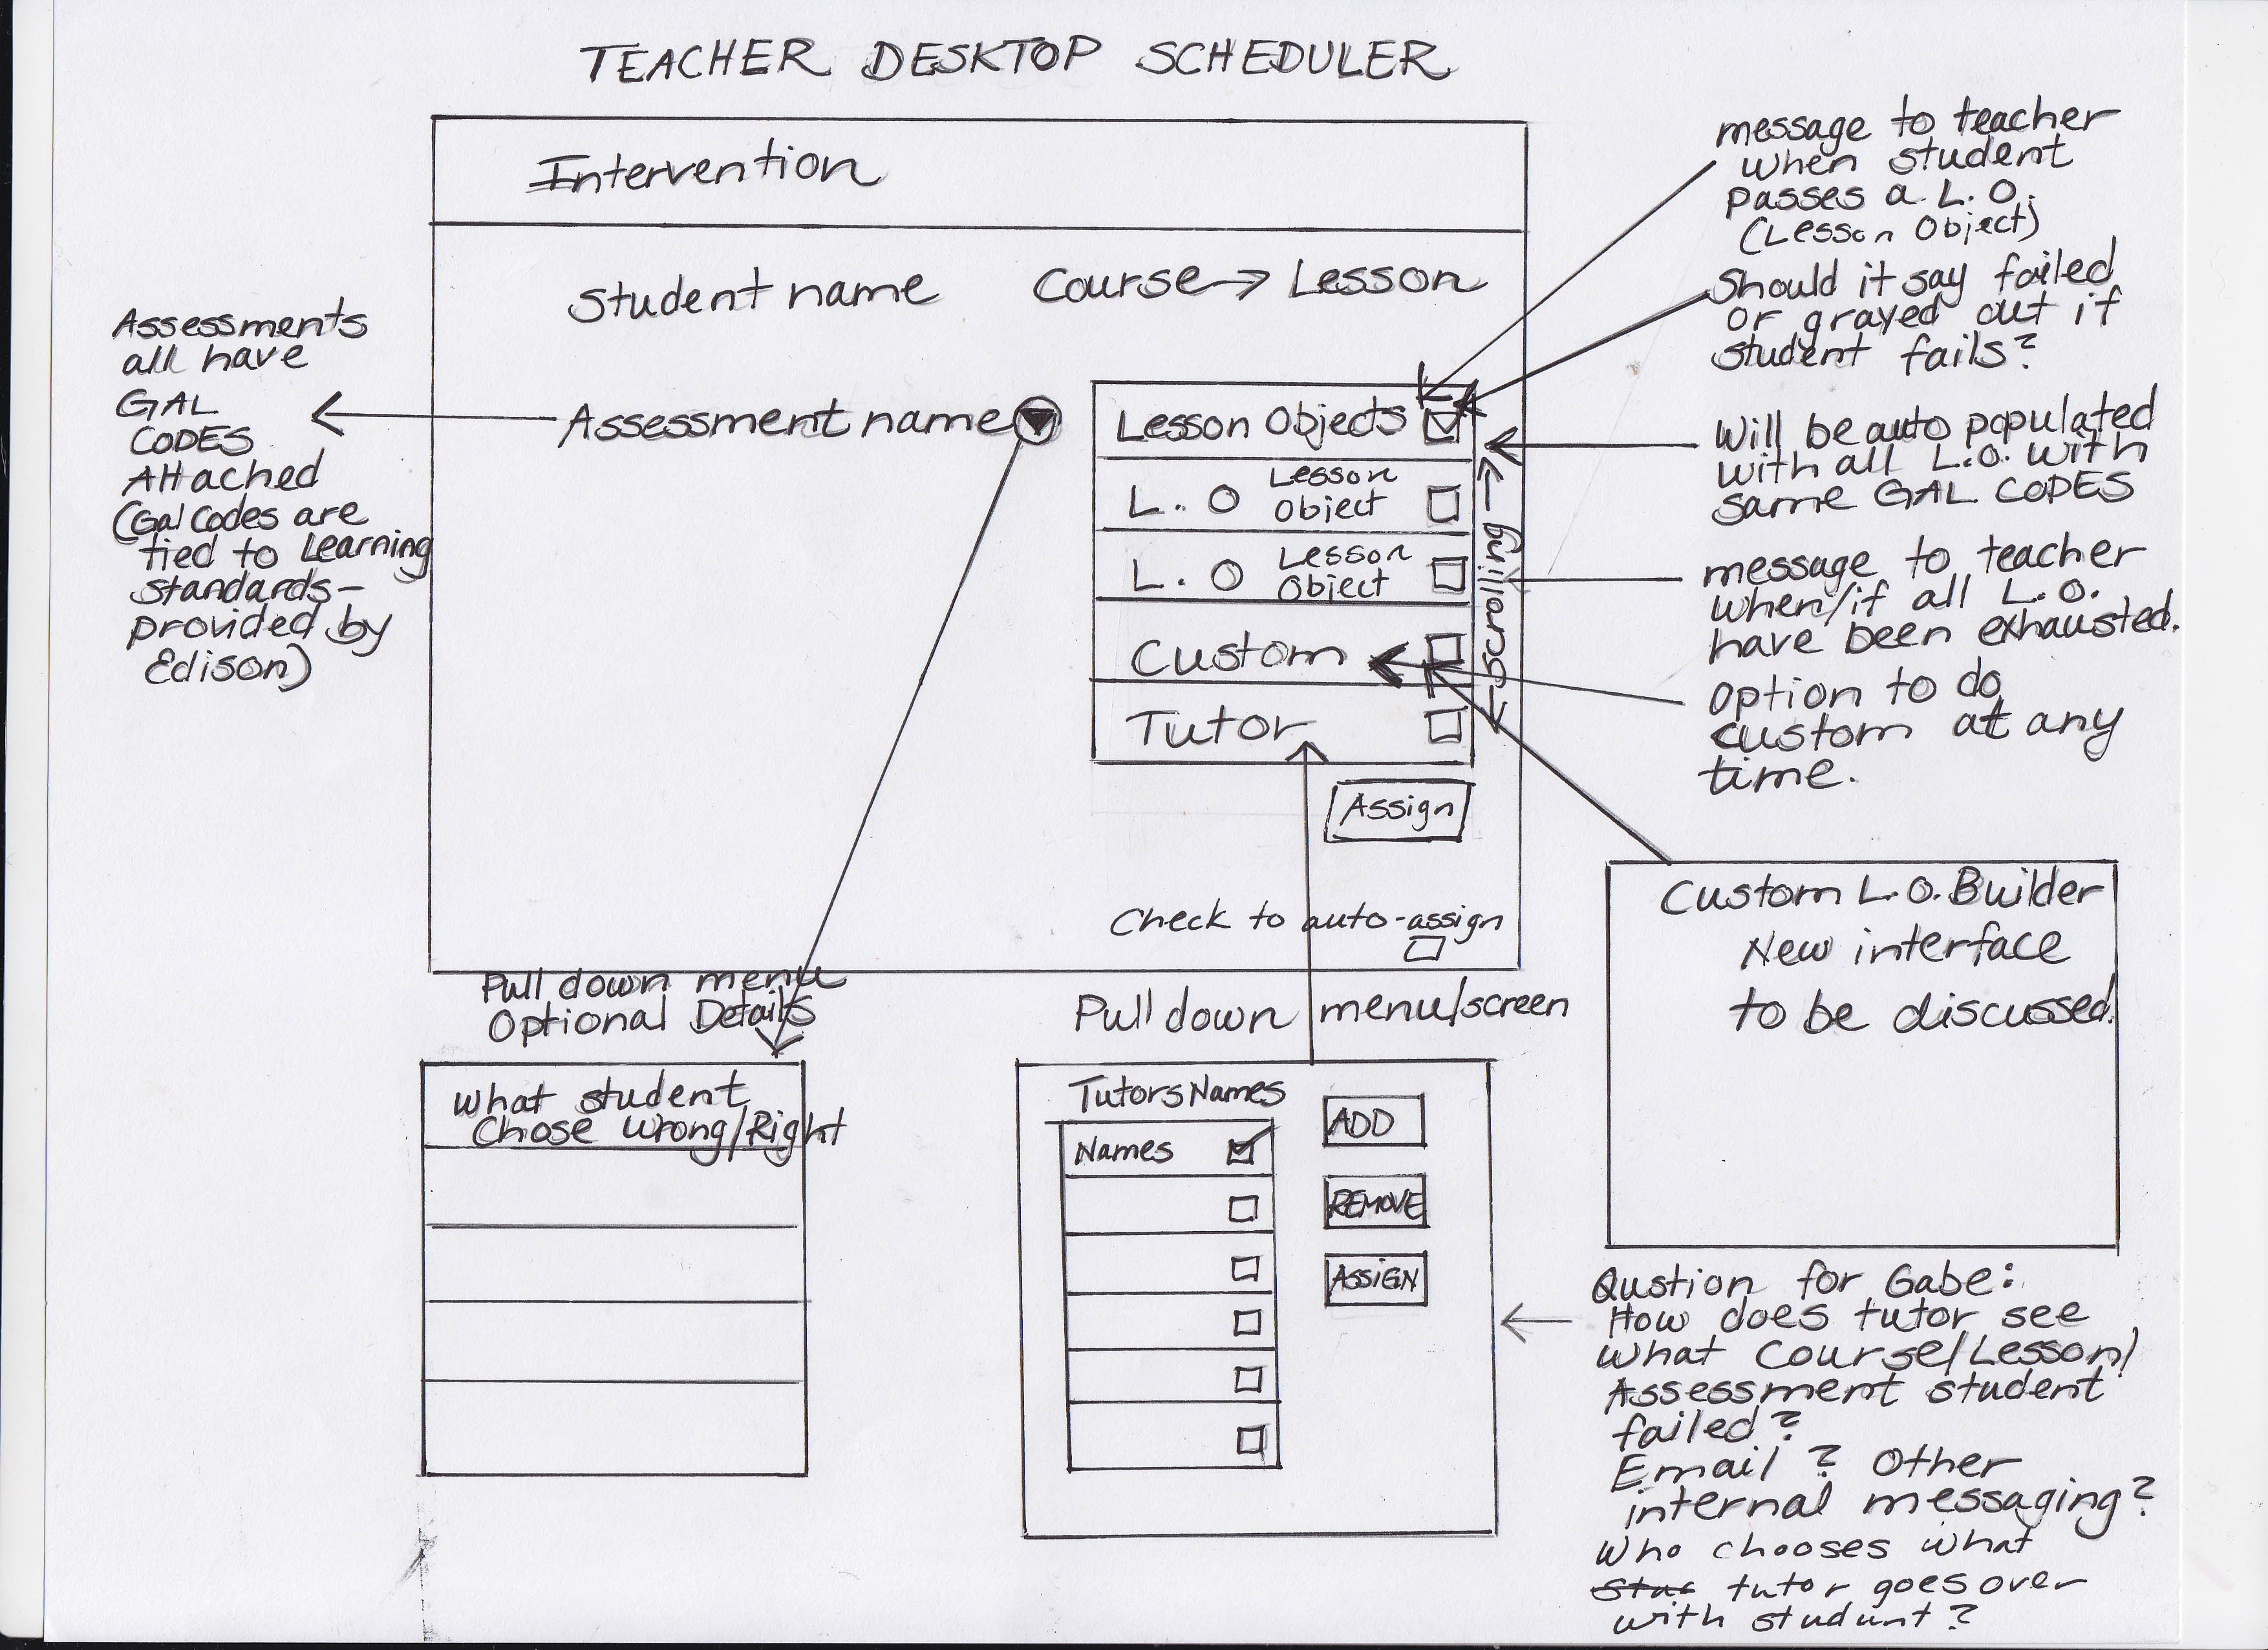 TEACHER DESKTOP SCHEDULER
Intervention
Student name
Course → Lesson
Assessment name
Assessments
all have
GAL
CODES
Attached
(Gal Codes are
tied to Learning
standards-
provided by
Edison)
Lesson Objects
L. O Lesson
Object
L. O Lesson
Object
Custom
Tutor
Scrolling
Assign
Check to auto-assign
message to teacher
when student
passes a L.O.
(Lesson Object)
Should it say failed
or grayed out if
student fails?
Will be auto populated
with all L.O. with
same GAL CODES
message to teacher
when/if all L.O.
have been exhausted.
option to do
custom at any
time.
Custom L.O. Builder
New interface
to be discussed.
Pull down menu
Optional Details
What student
Chose Wrong/Right
Pull down menu/screen
Tutors Names
Names
ADD
REMOVE
ASSIGN
Qustion for Gabe:
How does tutor see
what Course/Lesson/
Assessment student
failed?
Email? Other
internal messaging?
Who chooses what
tutor goes over
with student?